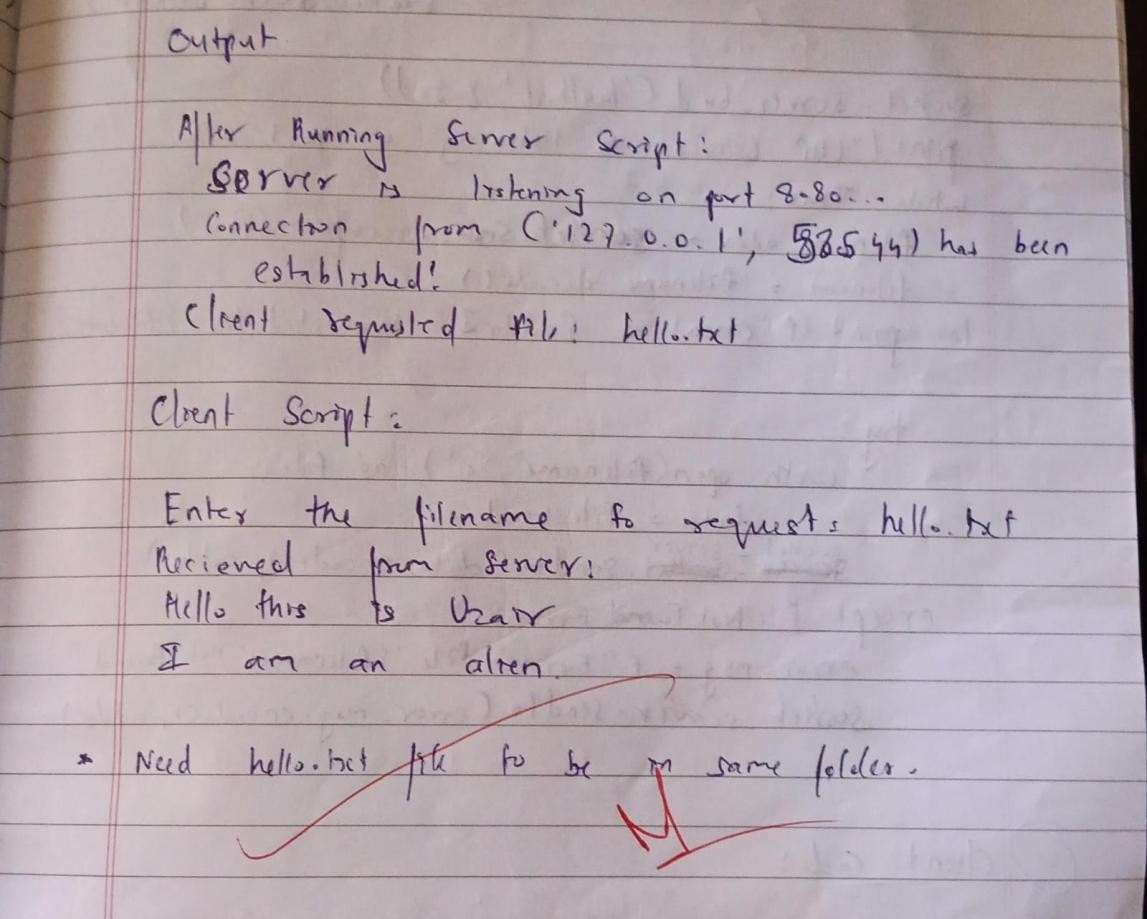 Output
After Running Server Script:
Server is listening on port 8080...
Connection from ('127.0.0.1', 544) has been
established!
Client requested file: hello.txt
Client Script:
Enter the filename to request: hello.txt
Recieved from server:
Hello this is Uzair
I am an alien.
* Need hello.txt file to be in same folder.